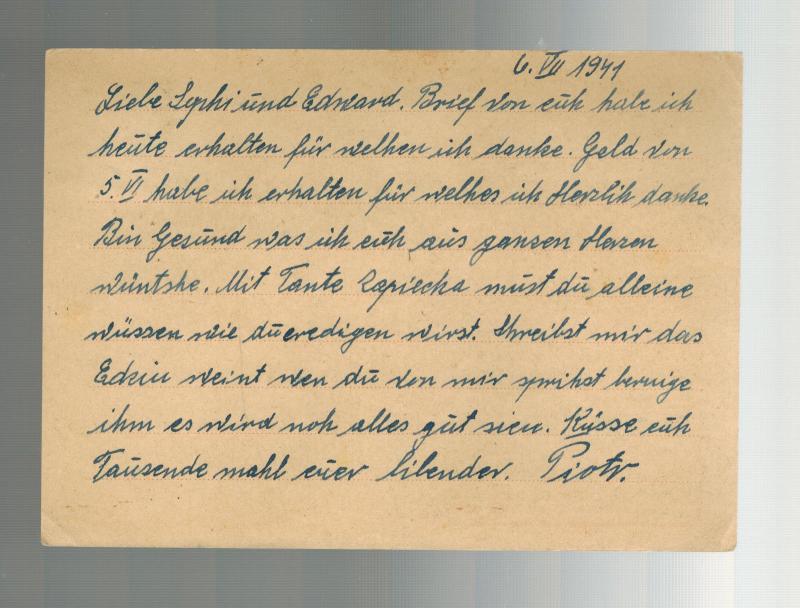 6. VII 1941
Liebe Sophi und Edward. Brief von euh habe ich
heute erhalten für welhen ich danke. Geld von
5. VI habe ich erhalten für welhes ich Herzlih danke.
Bin Gesund was ich euh aus ganzen Herzen
wüntshe. Mit Tante Lapiecka must du alleine
wüssen wie du eredigen wirst. Shreibst mir das
Edziu weint wen du von mir sprihst beruige
ihm es wird noh alles gut sien. Küsse euh
Tausende mahl euer libender. Piotr.